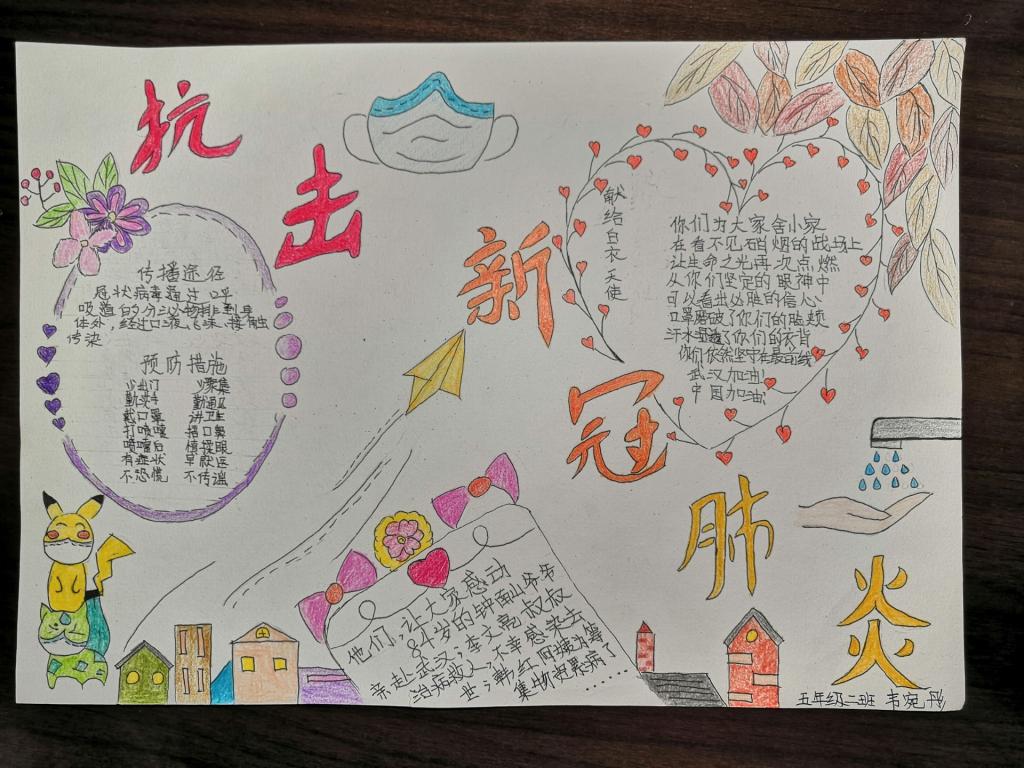 抗击新冠肺炎
传播途径
冠状病毒通过呼
吸道的分泌物排到身
体外,经过口液、飞沫、接触
传染
预防措施
少出门 少聚集
勤洗手 勤通风
戴口罩 讲卫生
打喷嚏 捂口鼻
喷嚏后 慎揉眼
有症状 早就医
不恐慌 不传谣
献给白衣天使
你们为大家舍小家
在看不见硝烟的战场上
让生命之光再次点燃
从你们坚定的眼神中
可以看出必胜的信心
口罩磨破了你们的脸颊
汗水湿透了你们的衣背
你们依然坚守在最前线
武汉加油!
中国加油!
他们,让大家感动
84岁的钟南山爷爷
亲赴武汉;李文亮叔叔
治病救人,不幸感染去
世;韩红阿姨为筹
集物资累病了
......
五年级二班 韦宛彤